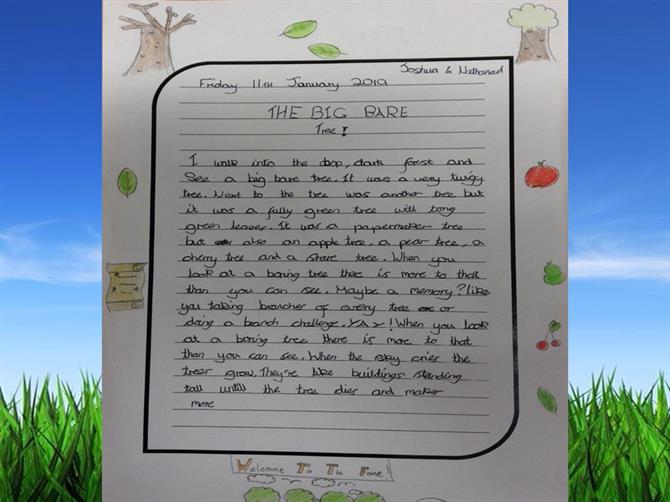 Joshua & Nathanael
Friday 11TH January 2019
THE BIG BARE
Tree!
I walk into the deep, dark forest and
See a big bare tree. It was a very twigy
tree. Next to the tree was another tree but
it was a fully green tree with long
green leaves. It was a papermaker tree
but also an apple tree, a pear tree, a
cherry tree and a share tree. When you
look at a boring tree thee is more to that
than you can see. Maybe a memory? Like
you taking branches of every tree or
doing a branch challenge. YAY! When you look
at a boring tree there is more to that
than you can see. When the sky cries the
trees grow. They're like buildings standing
tall untill the tree dies and makes
more
Welcome To The Forest!